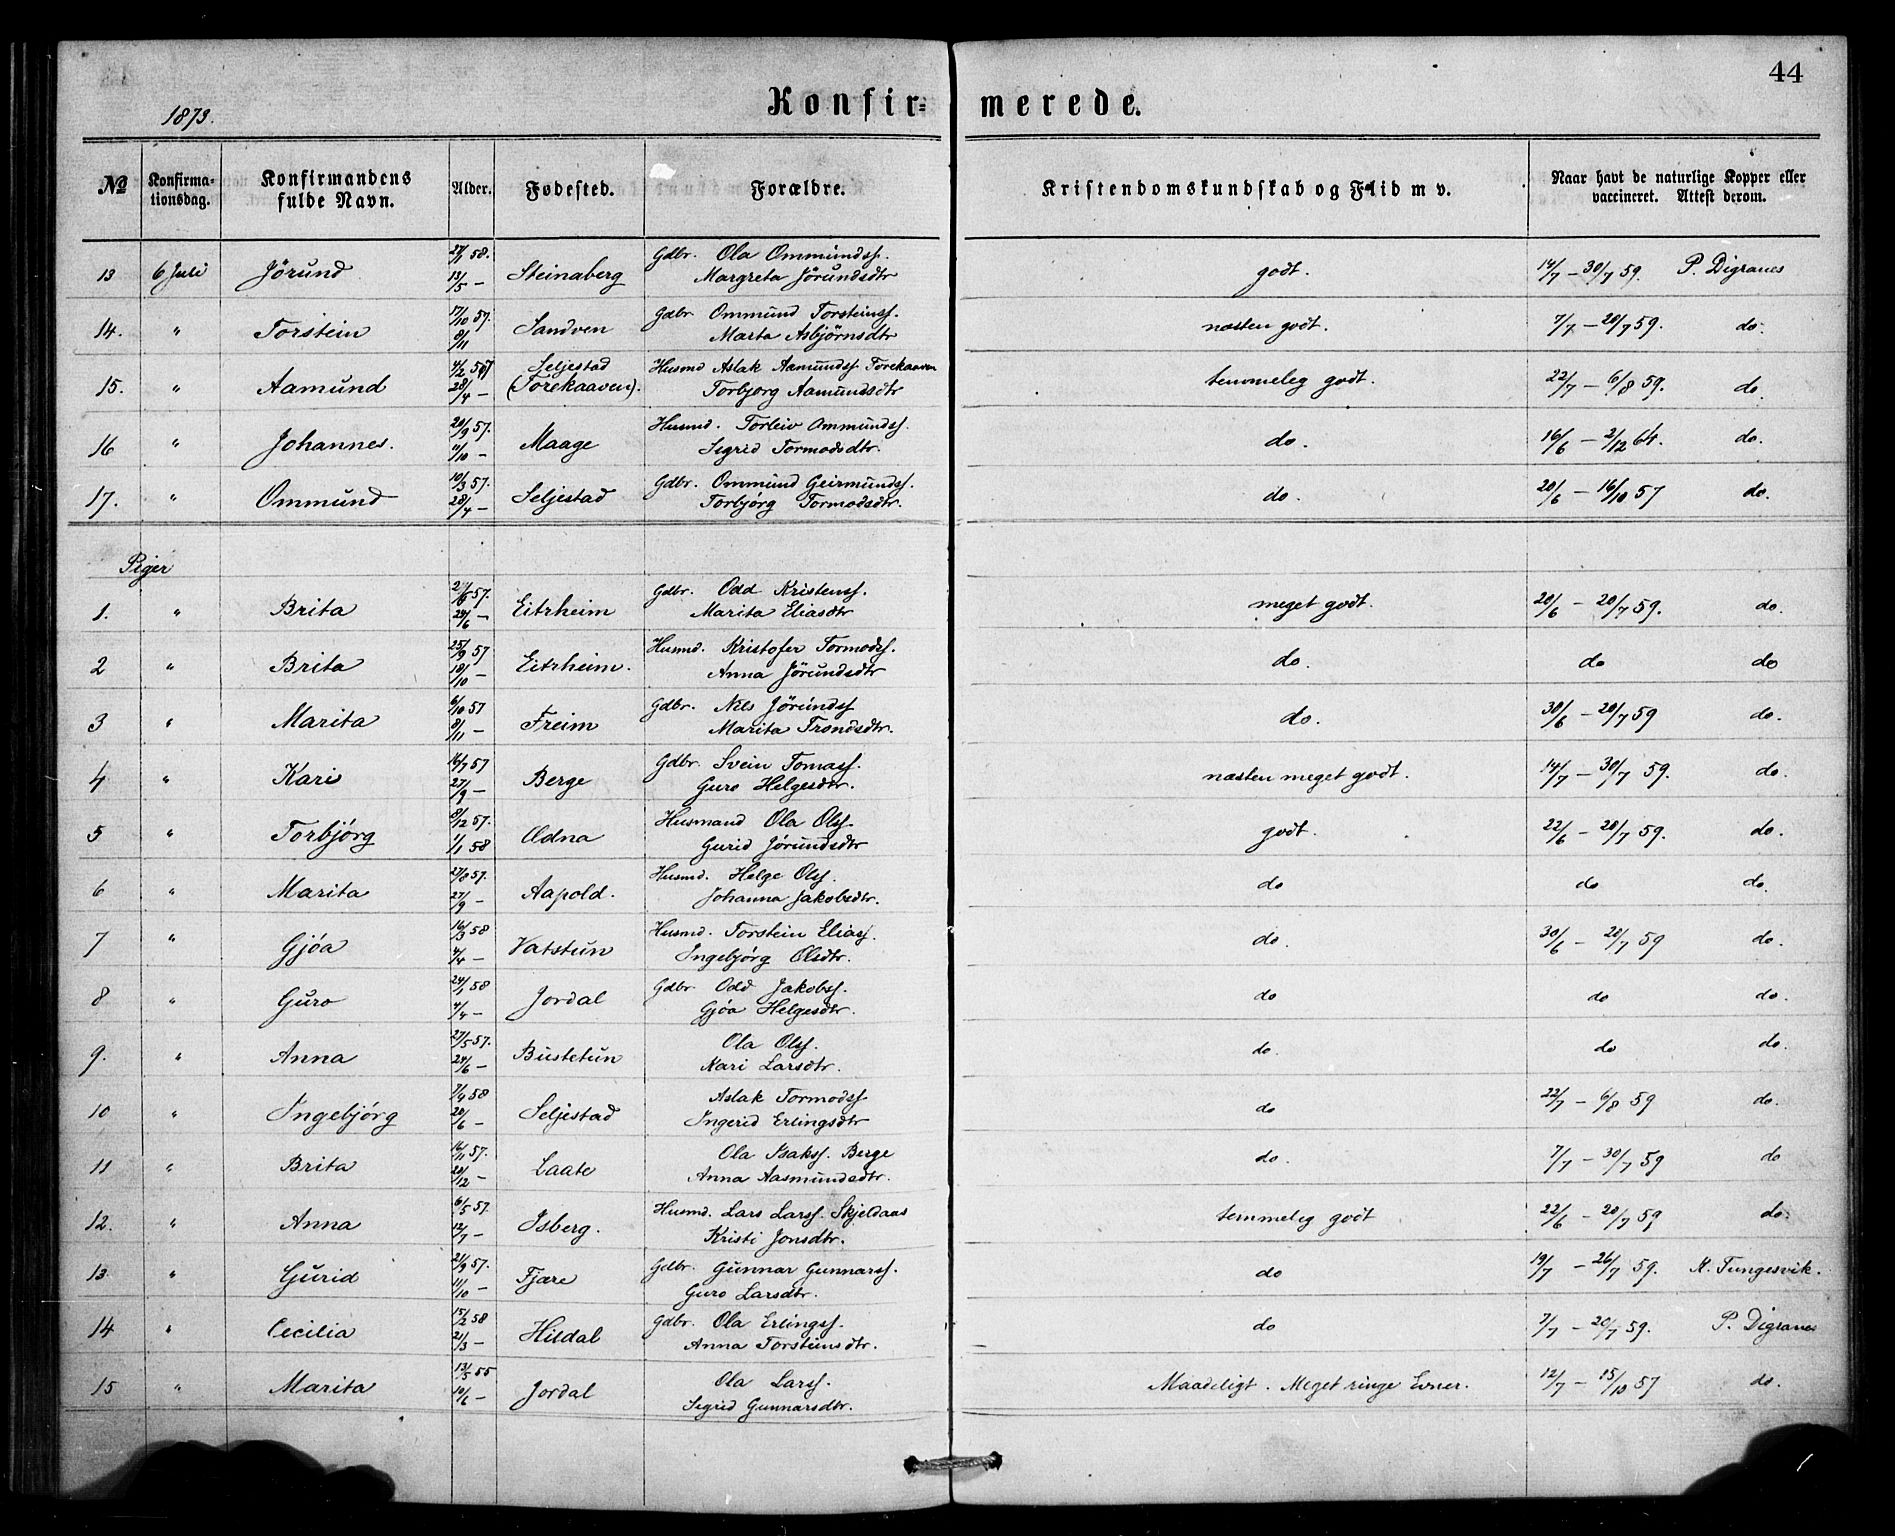 44
1873.
Konfirmerede.
No Konfirmationsdag. Konfirmandens fulde Navn. Alder. Fødested. Forældre. Kristendomskundskab og Flid m v. Naar havt de naturlige Kopper eller vaccineret. Attest derom.
13 6 Juli Jörund 58. 13/5 — Steinaberg Gdbr. Ola Ommundsf. Margreta Jörundsdtr godt. 14/7 — 30/7 59. P. Digranes
14. " Torstein 17/10 57. 8/11 Sandven Gdbr Ommund Torsteinsf. Marta Asbjörnsdtr næsten godt. 7/7 — 20/7 59. do.
15. " Aamund 4/2 28/4 — Seljestad (Forekaaven). Husmd Aslak Aamundsf. Forekaaven Torbjorg Aamundsdtr temmeleg godt. 22/7 — 6/8 59. do.
16 " Johannes. 20/9 57. 11/10 — Maage Husmd. Torleiv Ommundsf. Sigrid Tormodsdtr. do. 16/6 — 2/12 64. do.
17. " Ommund 10/3 57. 28/4 — Seljestad Gdbr. Ommund Geirmundsf. Torbjörg Tormodsdtr. do. 20/6 — 16/10 57 do.
Piger
1. " Brita 57. 24/6 — Eitrheim Gdbr. Odd Kristensf. Marita Eliasdtr meget godt. 20/6 — 20/7 59. do.
2 " Brita 25/9 57 18/10 — Eitrheim. Husmd. Kristofer Tormodsf. Anna Jörundsdtr do. do do
3 " Marita 6/10 57 8/11 — Freim Gdbr. Nils Jörundsf Marita Trondsdtr. do. 30/6 — 20/7 59 do.
4 " Kari 16/7 57 27/9 — Berge Gdbr. Svein Tomasf. Guro Helgesdtr. næsten meget godt. 14/7 — 30/7 59. do.
5 " Torbjörg 8/12 57. 1/1 58 Ædna Husmand Ola Olsf. Gurid Jörundsdtr godt. 22/6 — 20/7 59. do.
6 " Marita 27/8 57. 27/9 — Aapold. Husmd. Helge Olsf. Johanna Jakobsdtr. do do do.
7 " Gjöa 16/3 58 4/4 — Vatstun Husmd. Torstein Eliasf. Ingebjörg Olsdtr. do. 30/6 — 20/7 59 do.
8 " Guro 24/1 58 4/4 — Jordal Gdbr Odd Jakobsf. Gjöa Helgesdtr. do do do.
9. " Anna 27/5 57. 24/6 — Bustetun Ola Olsf. Kari Larsdtr. do. do do.
10 " Ingebjörg 7/4 58 20/6 — Seljestad Aslak Tormodsf Ingerid Erlingsdtr do 22/7 — 6/8 59 do.
11 " Brita 16/11 57. 20/12 — Laate Ola Isaksf. Berge Anna Aasmundsdtr. do. 7/7 — 30/7 59 do
12. " Anna 6/5 57. 12/7 — Isberg. Husmd. Lars Larsf. Skjeldaas Kristi Jonsdtr. temmelig godt 22/6 — 20/7 59 do.
13. " Gurid 21/9 57. 11/10 — Fjære Gdbr. Gunnar Gunnarsf. Guro Larsdtr. do 19/7 — 26/7 59. K. Tungesvik.
14 " Cecilia 15/2 58 21/3 — Hildal Gdbr. Ola Erlingsf. Anna Torsteinsdtr. do 7/7 — 20/7 59. P. Digranes
15 " Marita 13/5 55 10/6 — Jordal Ola Larsf. Sigrid Gunnarsdtr. Maadeligt. Meget ringe Evner. 12/7 — 15/10 57 do.